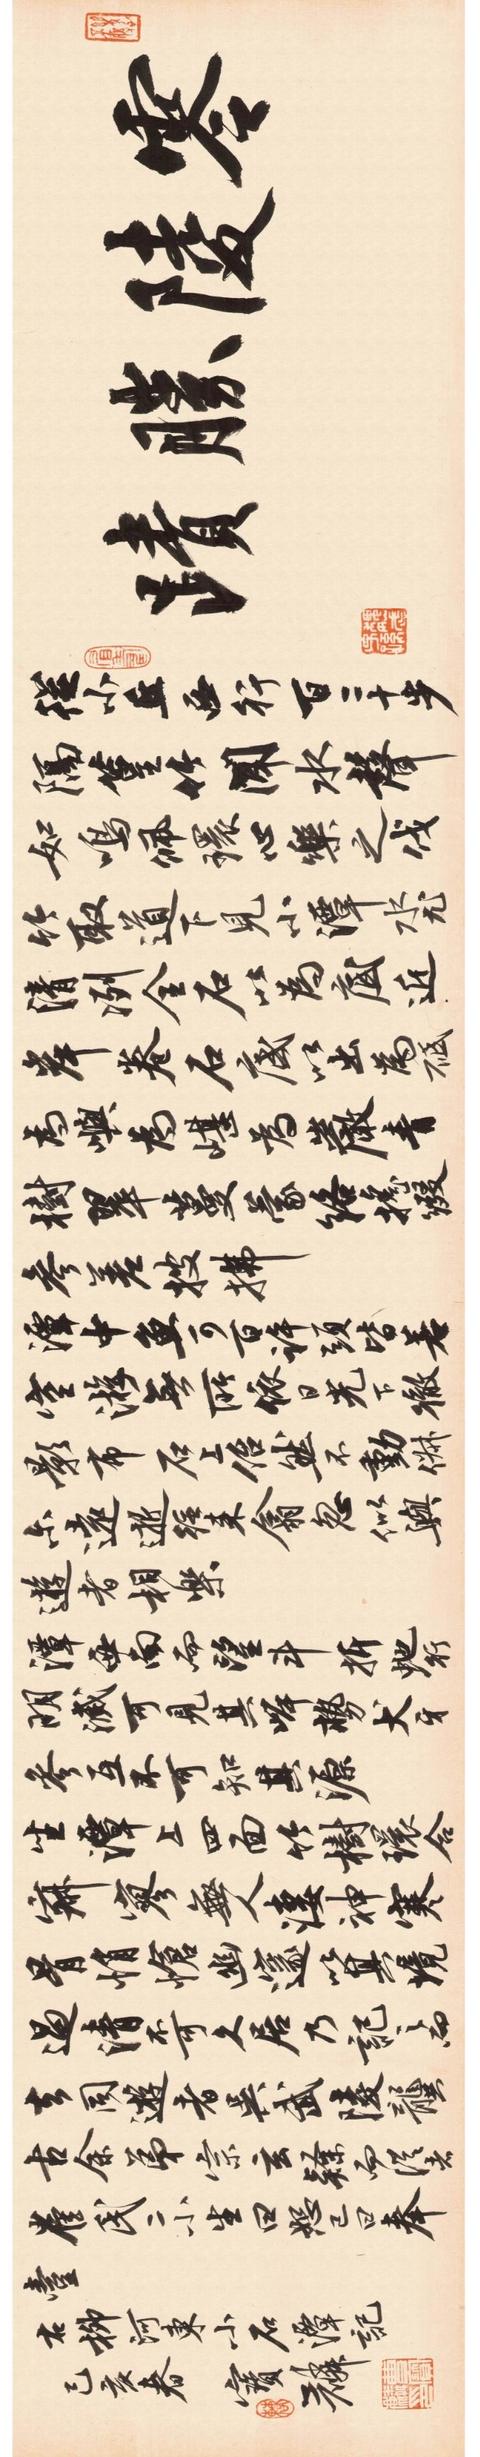 零陵勝蹟
從小丘西行百二十步
隔篁竹聞水聲
如鳴佩環心樂之伐
竹取道下見小潭水尤
清冽全石以為底近
岸卷石底以出為坻
為嶼為嵁為巖青
樹翠蔓蒙絡搖綴
參差披拂
潭中魚可百許頭皆若
空游無所依日光下徹
影布石上佁然不動俶
尔遠逝往來翕忽似與
遊者相樂
潭西南而望斗折蛇行
明滅可見其岸勢犬牙
參互不可知其源
坐潭上四面竹樹環合
寂寥無人淒神寒
骨悄愴幽邃以其境
過清不可久居乃記之而
去同遊者吳武陵龔
古余弟宗玄隸而從者
崔氏二小生曰恕己曰奉
壹
右柳河東小石潭記
己亥春 寶